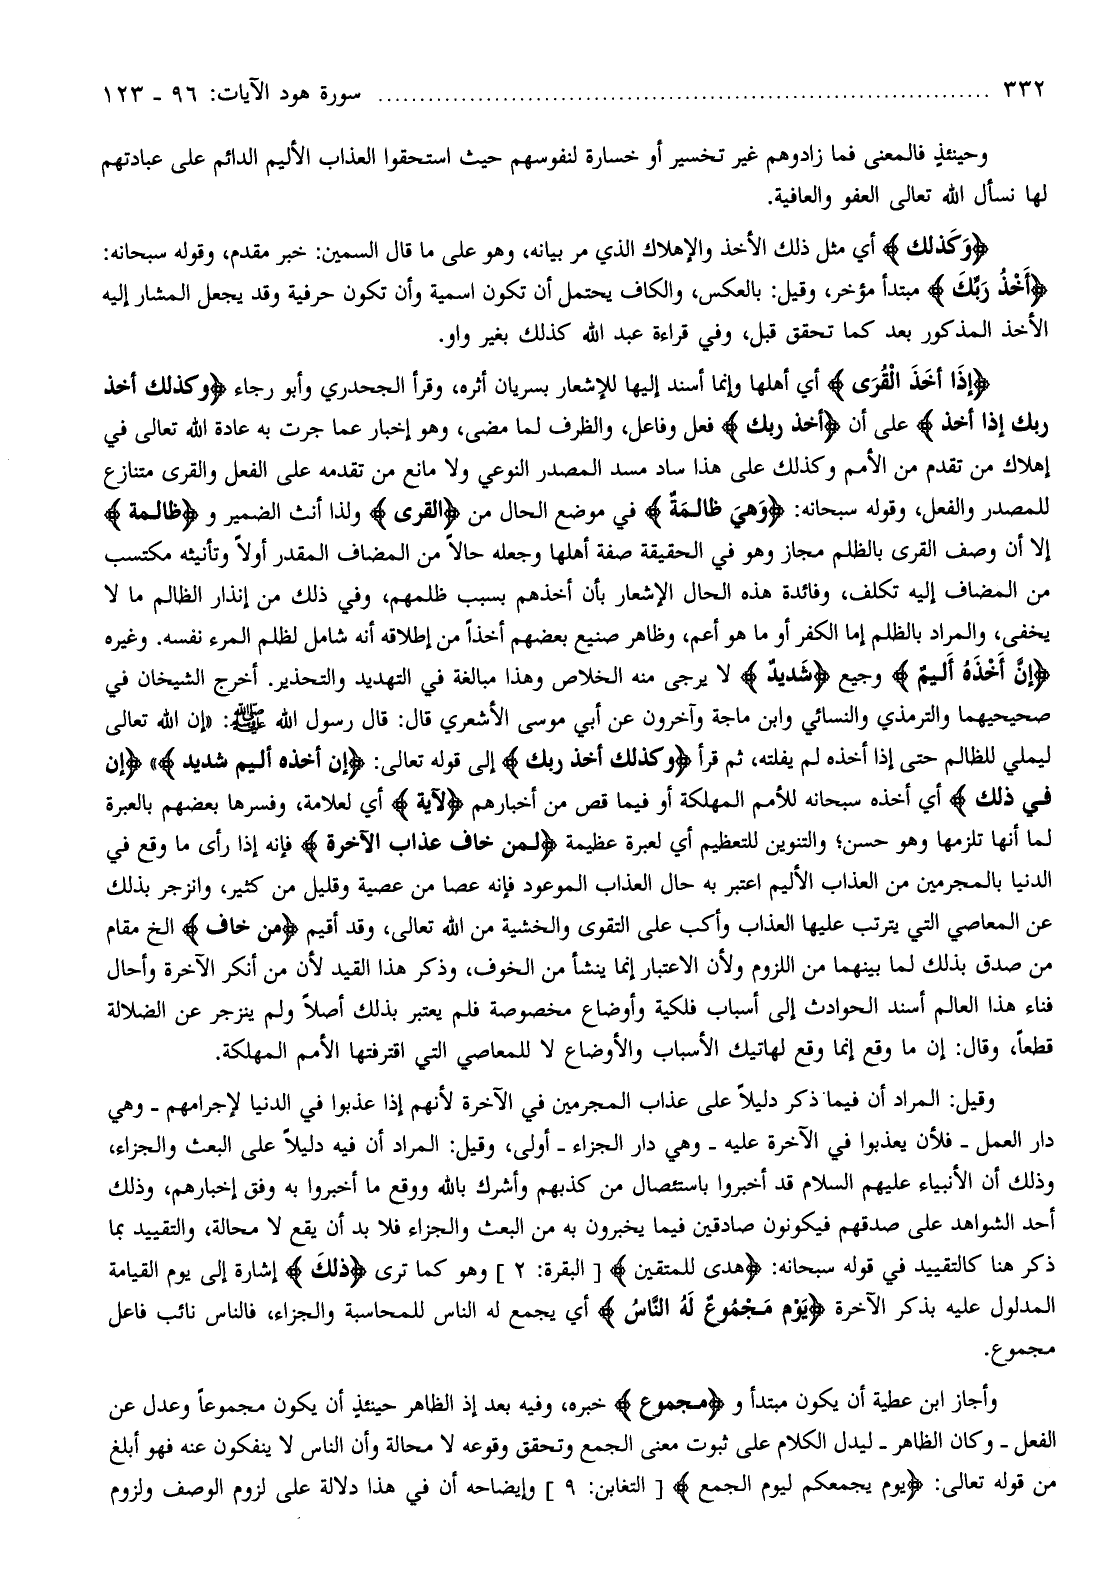 ٣٣٢ ........................................ سورة هود الآيات: ٩٦ ـ ١٢٣
وحينئذٍ فالمعنى فما زادوهم غير تخسير أو خسارة لنفوسهم حيث استحقوا العذاب الأليم الدائم على عبادتهم
لها نسأل الله تعالى العفو والعافية.
﴿وَكَذلك﴾ أي مثل ذلك الأخذ والإهلاك الذي مر بيانه، وهو على ما قال السمين: خبر مقدم، وقوله سبحانه:
﴿أَخْذُ رَبِّكَ﴾ مبتدأ مؤخر، وقيل: بالعكس، والكاف يحتمل أن تكون اسمية وأن تكون حرفية وقد يجعل المشار إليه
الأخذ المذكور بعد كما تحقق قبل، وفي قراءة عبد الله كذلك بغير واو.
﴿إذَا أخَذَ الْقُرَى﴾ أي أهلها وإنما أسند إليها للإشعار بسريان أثره، وقرأ الجحدري وأبو رجاء ﴿وكذلك أخذ
ربك إذا أخذ﴾ على أن ﴿أخذ ربك﴾ فعل وفاعل، والظرف لما مضى، وهو إخبار عما جرت به عادة الله تعالى في
إهلاك من تقدم من الأمم وكذلك على هذا ساد مسد المصدر النوعي ولا مانع من تقدمه على الفعل والقرى متنازع
للمصدر والفعل، وقوله سبحانه: ﴿وَهيَ ظالمَةٌ﴾ في موضع الحال من ﴿القرى﴾ ولذا أنث الضمير و ﴿ظالمة﴾
إلا أن وصف القرى بالظلم مجاز وهو في الحقيقة صفة أهلها وجعله حالاً من المضاف المقدر أولاً وتأنيثه مكتسب
من المضاف إليه تكلف، وفائدة هذه الحال الإشعار بأن أخذهم بسبب ظلمهم، وفي ذلك من إنذار الظالم ما لا
يخفى، والمراد بالظلم إما الكفر أو ما هو أعم، وظاهر صنيع بعضهم أخذاً من إطلاقه أنه شامل لظلم المرء نفسه. وغيره
﴿إنَّ أَخْذَهُ أَليمٌ﴾ وجيع ﴿شَديدٌ﴾ لا يرجى منه الخلاص وهذا مبالغة في التهديد والتحذير. أخرج الشيخان في
صحيحيهما والترمذي والنسائي وابن ماجة وآخرون عن أبي موسى الأشعري قال: قال رسول الله ﷺ: «إن الله تعالى
ليملي للظالم حتى إذا أخذه لم يفلته، ثم قرأ ﴿وكذلك أخذ ربك﴾ إلى قوله تعالى: ﴿إن أخذه أليم شديد﴾» ﴿إن
في ذلك﴾ أي أخذه سبحانه للأمم المهلكة أو فيما قص من أخبارهم ﴿لآية﴾ أي لعلامة، وفسرها بعضهم بالعبرة
لما أنها تلزمها وهو حسن؛ والتنوين للتعظيم أي لعبرة عظيمة ﴿لمن خاف عذاب الآخرة﴾ فإنه إذا رأى ما وقع في
الدنيا بالمجرمين من العذاب الأليم اعتبر به حال العذاب الموعود فإنه عصا من عصية وقليل من كثير، وانزجر بذلك
عن المعاصي التي يترتب عليها العذاب وأكب على التقوى والخشية من الله تعالى، وقد أقيم ﴿من خاف﴾ الخ مقام
من صدق بذلك لما بينهما من اللزوم ولأن الاعتبار إنما ينشأ من الخوف، وذكر هذا القيد لأن من أنكر الآخرة وأحال
فناء هذا العالم أسند الحوادث إلى أسباب فلكية وأوضاع مخصوصة فلم يعتبر بذلك أصلاً ولم ينزجر عن الضلالة
قطعاً، وقال: إن ما وقع إنما وقع لهاتيك الأسباب والأوضاع لا للمعاصي التي اقترفتها الأمم المهلكة.
وقيل: المراد أن فيما ذكر دليلاً على عذاب المجرمين في الآخرة لأنهم إذا عذبوا في الدنيا لإجرامهم ـ وهي
دار العمل ـ فلأن يعذبوا في الآخرة عليه ـ وهي دار الجزاء ـ أولى، وقيل: المراد أن فيه دليلاً على البعث والجزاء،
وذلك أن الأنبياء عليهم السلام قد أخبروا باستئصال من كذبهم وأشرك بالله ووقع ما أخبروا به وفق إخبارهم، وذلك
أحد الشواهد على صدقهم فيكونون صادقين فيما يخبرون به من البعث والجزاء فلا بد أن يقع لا محالة، والتقييد بما
ذكر هنا كالتقييد في قوله سبحانه: ﴿هدى للمتقين﴾ [ البقرة: ٢ ] وهو كما ترى ﴿ذلكَ﴾ إشارة إلى يوم القيامة
المدلول عليه بذكر الآخرة ﴿يَوْم مَجْمُوعٌ لَهُ النَّاسُ﴾ أي يجمع له الناس للمحاسبة والجزاء، فالناس نائب فاعل
مجموع.
وأجاز ابن عطية أن يكون مبتدأ و ﴿مجموع﴾ خبره، وفيه بعد إذ الظاهر حينئذٍ أن يكون مجموعاً وعدل عن
الفعل ـ وكان الظاهر ـ ليدل الكلام على ثبوت معنى الجمع وتحقق وقوعه لا محالة وأن الناس لا ينفكون عنه فهو أبلغ
من قوله تعالى: ﴿يوم يجمعكم ليوم الجمع﴾ [ التغابن: ٩ ] وإيضاحه أن في هذا دلالة على لزوم الوصف ولزوم